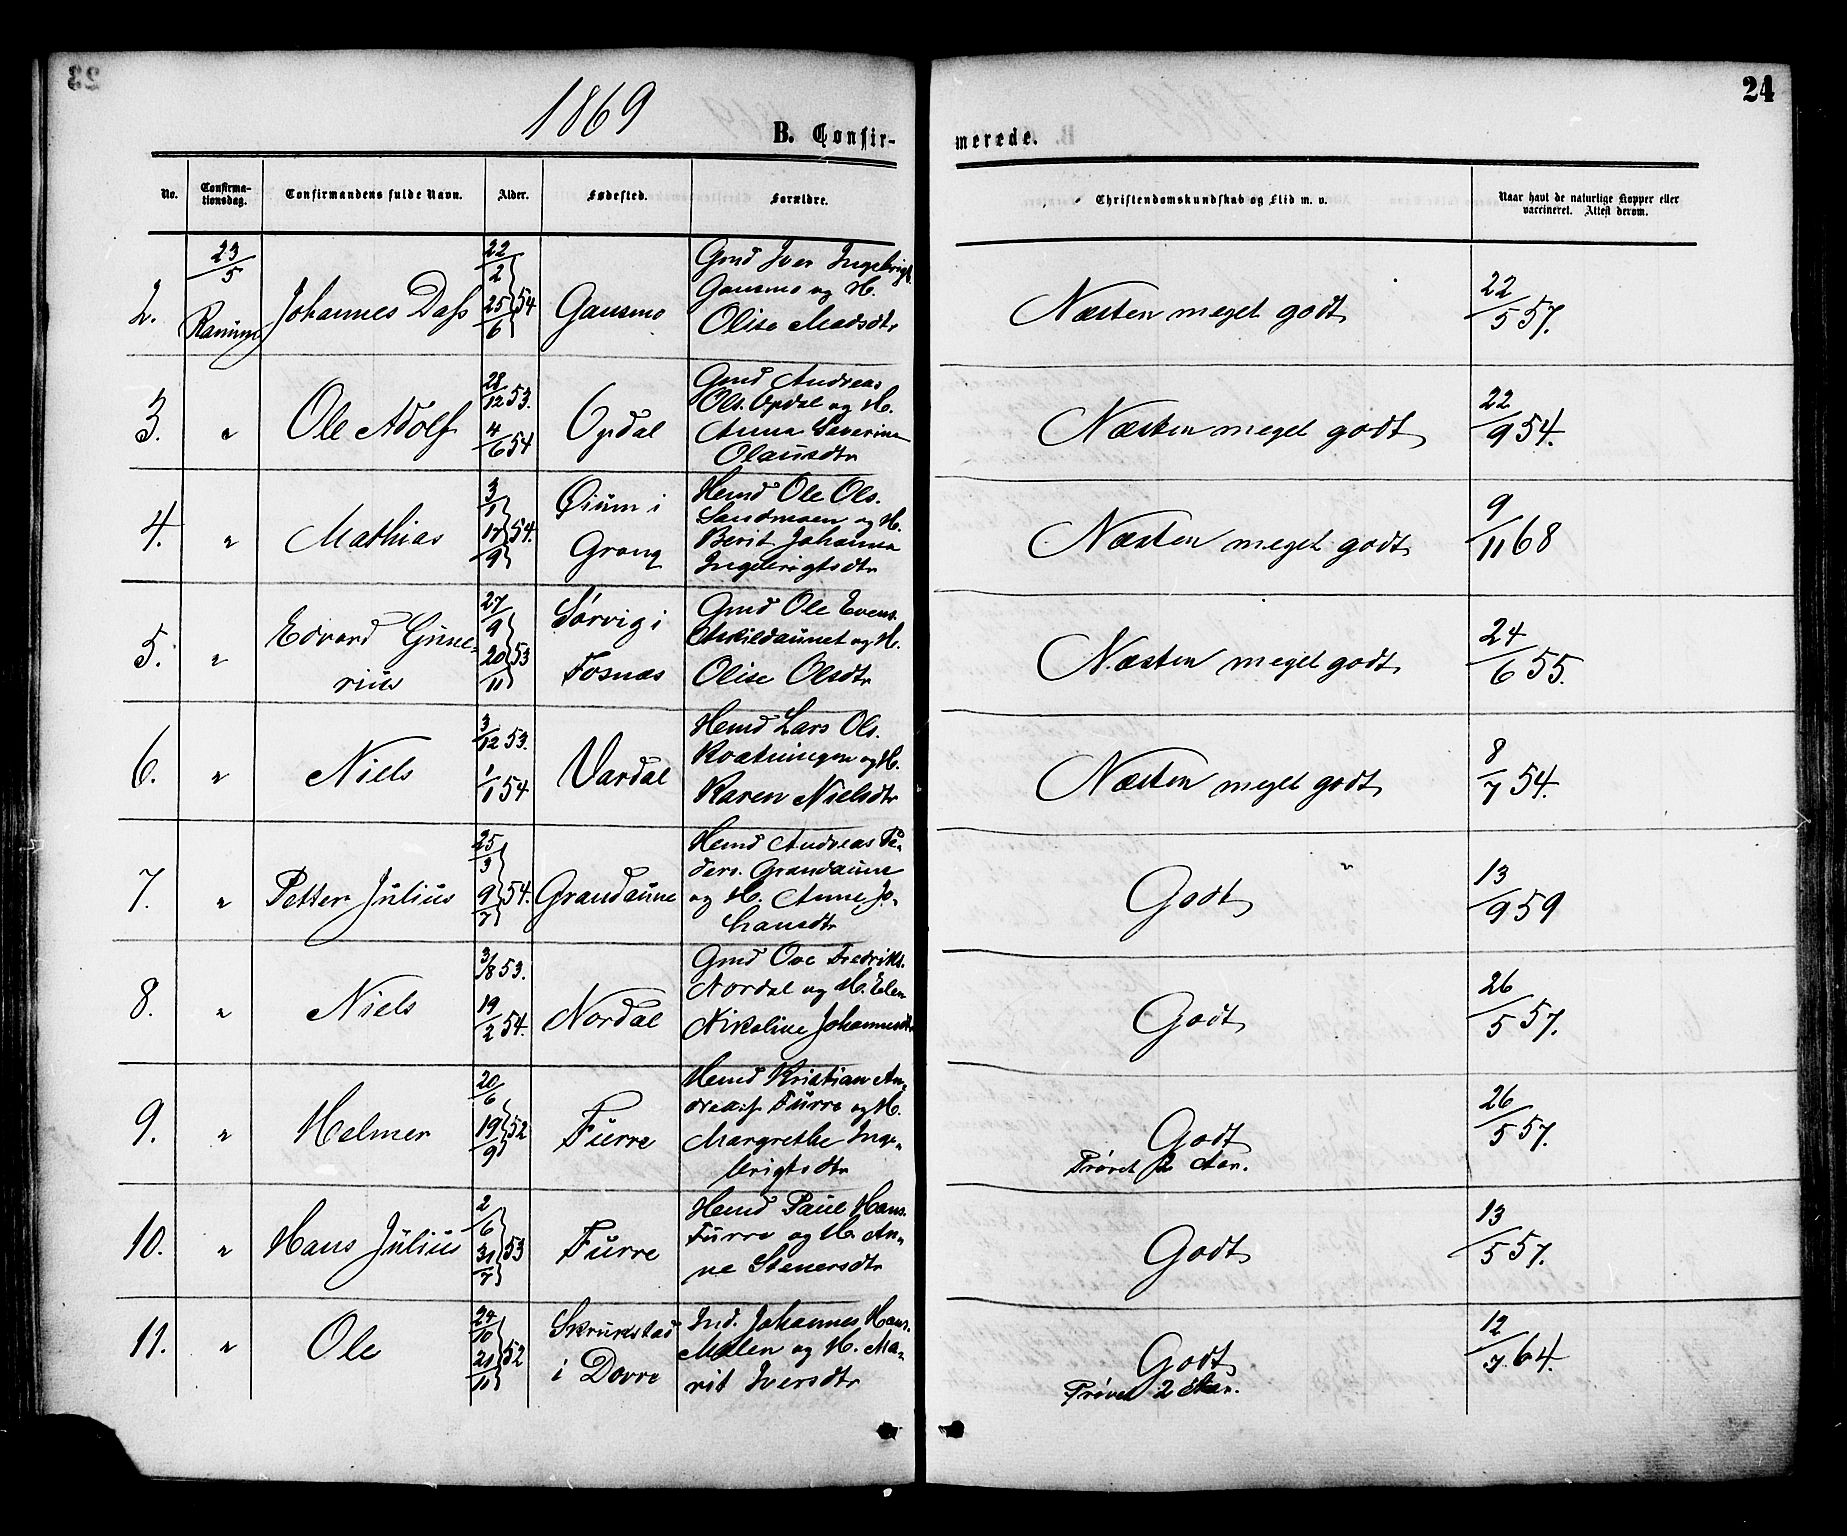 24
1869
B. Confirmerede.
No. Confirmationsdag. Confirmandens fulde Navn. Alder. Fødested. Forældre. Christendomskundskab og Flid m. v. Naar havt de naturlige Kopper eller vaccineret. Attest derom.
2. 23/5 Ranum Johannes Dass 22/2 25/6 54 Gansmo
Gmd Iver Ingebrigts.
Gansmo og H.
Olise Madsdtr
Næsten meget godt 22/5 57.
3. " Ole Adolf 28/12 53. 4/6 54 Opdal
Gmd Andreas
Ols. Opdal og H.
Anna Severine
Olausdtr
Næsten meget godt 22/9 54.
4. " Mathias 3/1 17/9 54. Øium i Grong
Hemd Ole Ols.
Sandmoen og H.
Berit Johanna
Ingebrigtsdtr
Næsten meget godt 9/11 68
5. " Edvard Gunerius 27/9 20/11 53 Sørvig i Fosnæs
Gmd Ole Evens.
og H.
Olise Olsdtr
Næsten meget godt 24/6 55.
6. " Niels 3/12 53. 1/1 54 Vardal
Hemd Lars Ols.
og H.
Karen Nielsdtr
Næsten meget godt 8/7 54.
7. " Petter Julius 25/3 9/7 54. Grandaune
Hemd Andreas Pe-
ders. Grandaune
og H. Anne Jo-
hansdtr
Godt 13/9 59
8. " Niels 3/8 53. 19/2 54. Nordal
Gmd Ove Fredriks.
Nordal og H. Elen
Nikoline Johannesdtr
Godt 26/5 57.
9. " Helmer 20/6 19/9 52 Furre
Hemd Kristian An-
dreas. Furre og H.
Margrethe Inge-
brigtsdtr
Godt
Prøvet 2 Aar.
26/5 57.
10. " Hans Julius 2/6 31/7 53 Furre
Hemd Paul Hans.
Furre og H. An-
ne Stenersdtr
Godt 13/5 57.
11. " Ole 24/10 21/11 52 Skrukstad i Dovre
Ind. Johannes Hans.
Moen og H. Ma-
rit Iversdtr
Godt
Prøvet 2 Aar.
12/7 64.